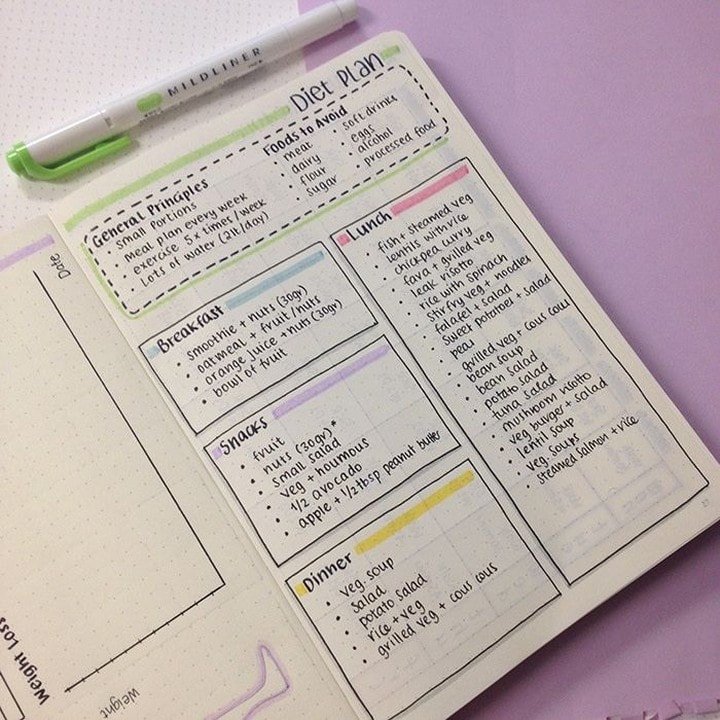 MILDLINER
Diet Plan
General Principles
small portions
meal plan every week
exercise 5x times/week
Lots of water (2lt/day)
Foods to Avoid
meat
dairy
flour
sugar
soft drinks
eggs
alcohol
processed food
Breakfast
smoothie + nuts (30gr)
oatmeal + fruit/nuts
orange juice + nuts (30gr)
bowl of fruit
Snacks
fruit
nuts (30gr)*
small salad
veg + houmous
1/2 avocado
apple + 1/2 tbsp peanut butter
Dinner
veg. soup
salad
potato salad
rice + veg
grilled veg + cous cous
Lunch
fish + steamed veg
lentils with rice
chickpea curry
fava + grilled veg
leak risotto
rice with spinach
stir fry veg + noodles
falafel + salad
sweet potatoes + salad
peas
grilled veg + cous cous
bean soup
bean salad
potato salad
tuna salad
mushroom risotto
veg burger + salad
lentil soup
veg. soups
steamed salmon + rice
Date
Weight Loss
Weight